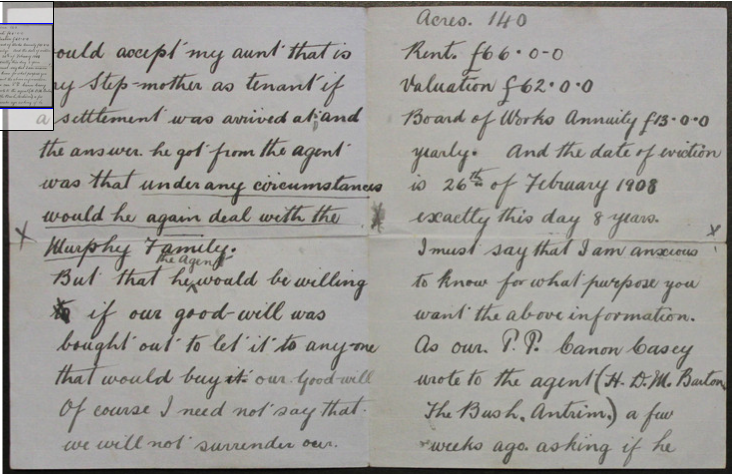 ould accept my aunt that is
y Step-mother as tenant if
a settlement was arrived at and
the answer he got from the agent
was that under any circumstances
would he again deal with the
Murphy Family.
the Agent
But that he would be willing
if our good-will was
bought out to let it to any-one
that would buy it our Good-will
Of course I need not say that
we will not surrender our.
Acres. 140
Rent. £66·0-0
Valuation £62·0·0
Board of Works Annuity £13·0·0
yearly. And the date of eviction
is 26th of February 1908
exactly this day 8 years.
I must say that I am anxious
to know for what purpose you
want the above information.
As our P.P. Canon Casey
wrote to the agent (H. D. M. Barton
The Bush, Antrim.) a few
weeks ago. asking if he